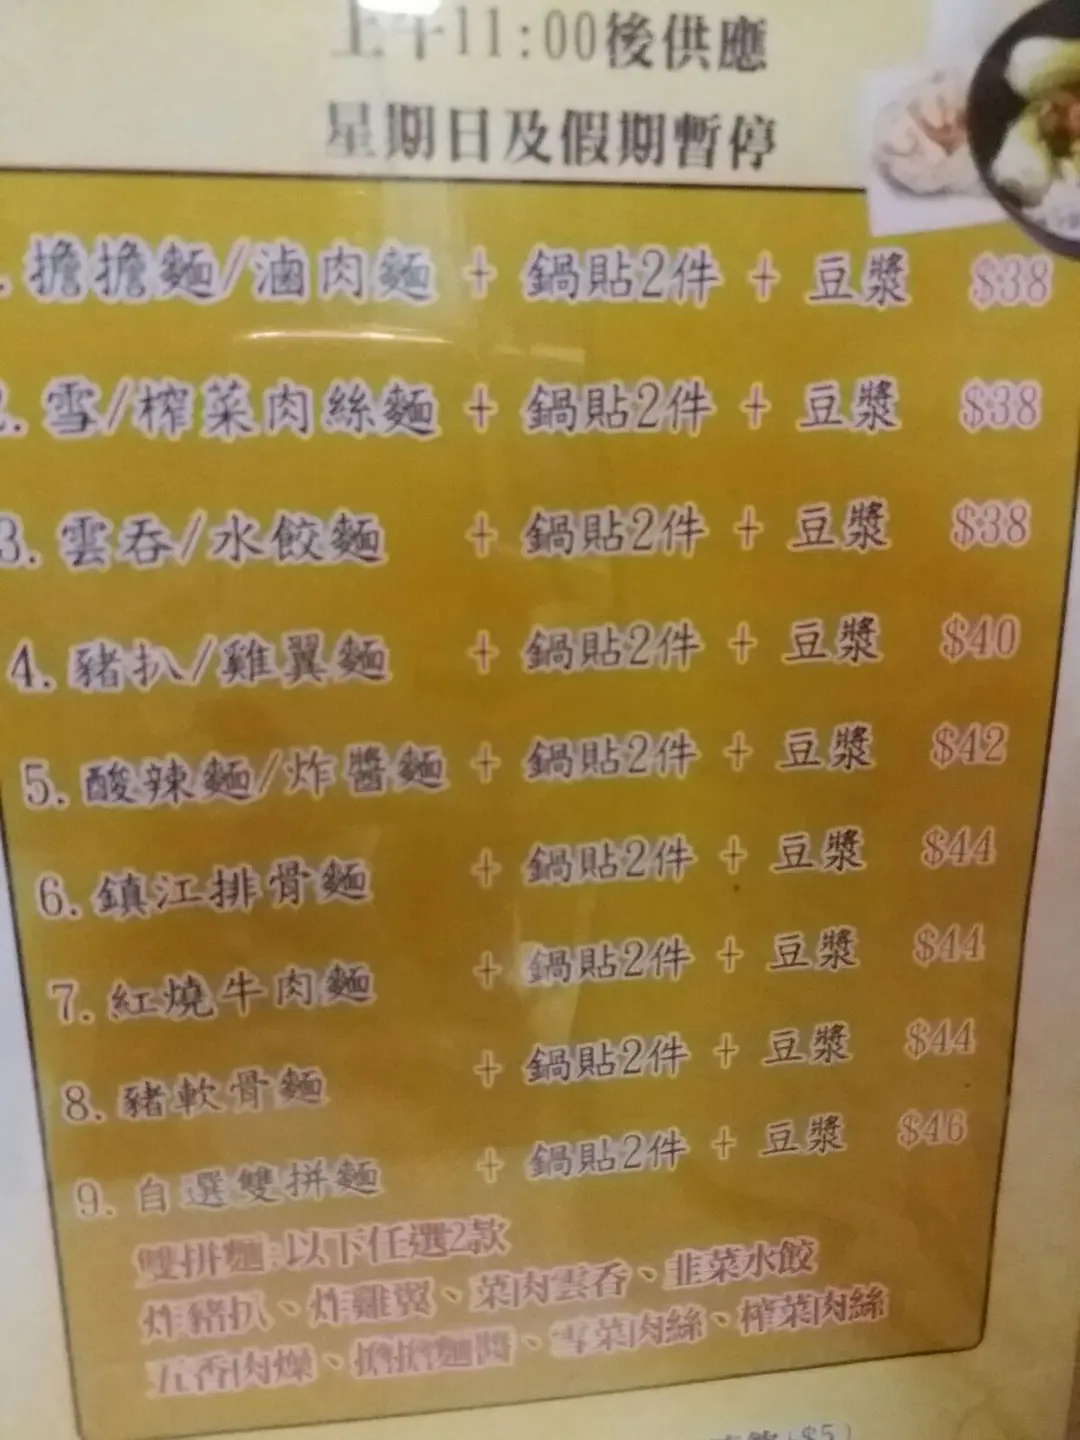 上午11:00後供應
星期日及假期暫停
擔擔麵/滷肉麵 + 鍋貼2件 + 豆漿 $38
2. 雪/榨菜肉絲麵 + 鍋貼2件 + 豆漿 $38
3. 雲吞/水餃麵 + 鍋貼2件 + 豆漿 $38
4. 豬扒/雞翼麵 + 鍋貼2件 + 豆漿 $40
5. 酸辣麵/炸醬麵 + 鍋貼2件 + 豆漿 $42
6. 鎮江排骨麵 + 鍋貼2件 + 豆漿 $44
7. 紅燒牛肉麵 + 鍋貼2件 + 豆漿 $44
8. 豬軟骨麵 + 鍋貼2件 + 豆漿 $44
9. 自選雙拼麵 + 鍋貼2件 + 豆漿 $46
雙拼麵:以下任選2款
炸豬扒、炸雞翼、菜肉雲吞、韭菜水餃
五香肉燥、擔擔麵醬、雪菜肉絲、榨菜肉絲
($5)